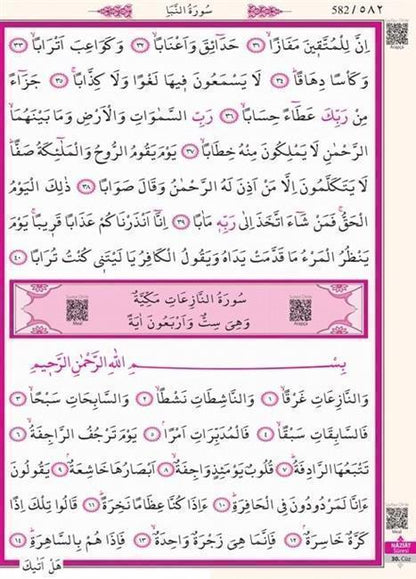 سُورَةُ النَّبَأِ
582/٥٨٢
اِنَّ لِلْمُتَّق۪ينَ مَفَازًاۙ ﴿٣١﴾ حَدَٓائِقَ وَاَعْنَابًاۙ ﴿٣٢﴾ وَكَوَاعِبَ اَتْرَابًاۙ ﴿٣٣﴾
وَكَأْسًا دِهَاقًاۜ ﴿٣٤﴾ لَا يَسْمَعُونَ ف۪يهَا لَغْوًا وَلَا كِذَّابًاۚ ﴿٣٥﴾ جَزَٓاءً
مِنْ رَبِّكَ عَطَٓاءً حِسَابًاۙ ﴿٣٦﴾ رَبِّ السَّمٰوَاتِ وَالْاَرْضِ وَمَا بَيْنَهُمَا
الرَّحْمٰنِ لَا يَمْلِكُونَ مِنْهُ خِطَابًاۚ ﴿٣٧﴾ يَوْمَ يَقُومُ الرُّوحُ وَالْمَلٰٓئِكَةُ صَفًّاۜ
لَا يَتَكَلَّمُونَ اِلَّا مَنْ اَذِنَ لَهُ الرَّحْمٰنُ وَقَالَ صَوَابًا ﴿٣٨﴾ ذٰلِكَ الْيَوْمُ
الْحَقُّۚ فَمَنْ شَٓاءَ اتَّخَذَ اِلٰى رَبِّه۪ مَاٰبًا ﴿٣٩﴾ اِنَّٓا اَنْذَرْنَاكُمْ عَذَابًا قَر۪يبًاۚ يَوْمَ
يَنْظُرُ الْمَرْءُ مَا قَدَّمَتْ يَدَاهُ وَيَقُولُ الْكَافِرُ يَا لَيْتَن۪ي كُنْتُ تُرَابًا ﴿٤٠﴾
سُورَةُ النَّازِعَاتِ مَكِّيَّةٌ
وَهِيَ سِتٌّ وَاَرْبَعُونَ اٰيَةً
Meal
Arapça
بِسْمِ اللّٰهِ الرَّحْمٰنِ الرَّح۪يمِ
وَالنَّازِعَاتِ غَرْقًاۙ ﴿١﴾ وَالنَّاشِطَاتِ نَشْطًاۙ ﴿٢﴾ وَالسَّابِحَاتِ سَبْحًاۙ ﴿٣﴾
فَالسَّابِقَاتِ سَبْقًاۙ ﴿٤﴾ فَالْمُدَبِّرَاتِ اَمْرًاۢ ﴿٥﴾ يَوْمَ تَرْجُفُ الرَّاجِفَةُۙ ﴿٦﴾
تَتْبَعُهَا الرَّادِفَةُۜ ﴿٧﴾ قُلُوبٌ يَوْمَئِذٍ وَاجِفَةٌۙ ﴿٨﴾ اَبْصَارُهَا خَاشِعَةٌۢ ﴿٩﴾ يَقُولُونَ
ءَاِنَّا لَمَرْدُودُونَ فِي الْحَافِرَةِۜ ﴿١٠﴾ ءَاِذَا كُنَّا عِظَامًا نَخِرَةًۜ ﴿١١﴾ قَالُوا تِلْكَ اِذًا
كَرَّةٌ خَاسِرَةٌۢ ﴿١٢﴾ فَاِنَّمَا هِيَ زَجْرَةٌ وَاحِدَةٌۙ ﴿١٣﴾ فَاِذَا هُمْ بِالسَّاهِرَةِۜ ﴿١٤﴾
هَلْ اَتٰيكَ
Arapça
Meal
NÂZİÂT
Sûresi
30. Cüz